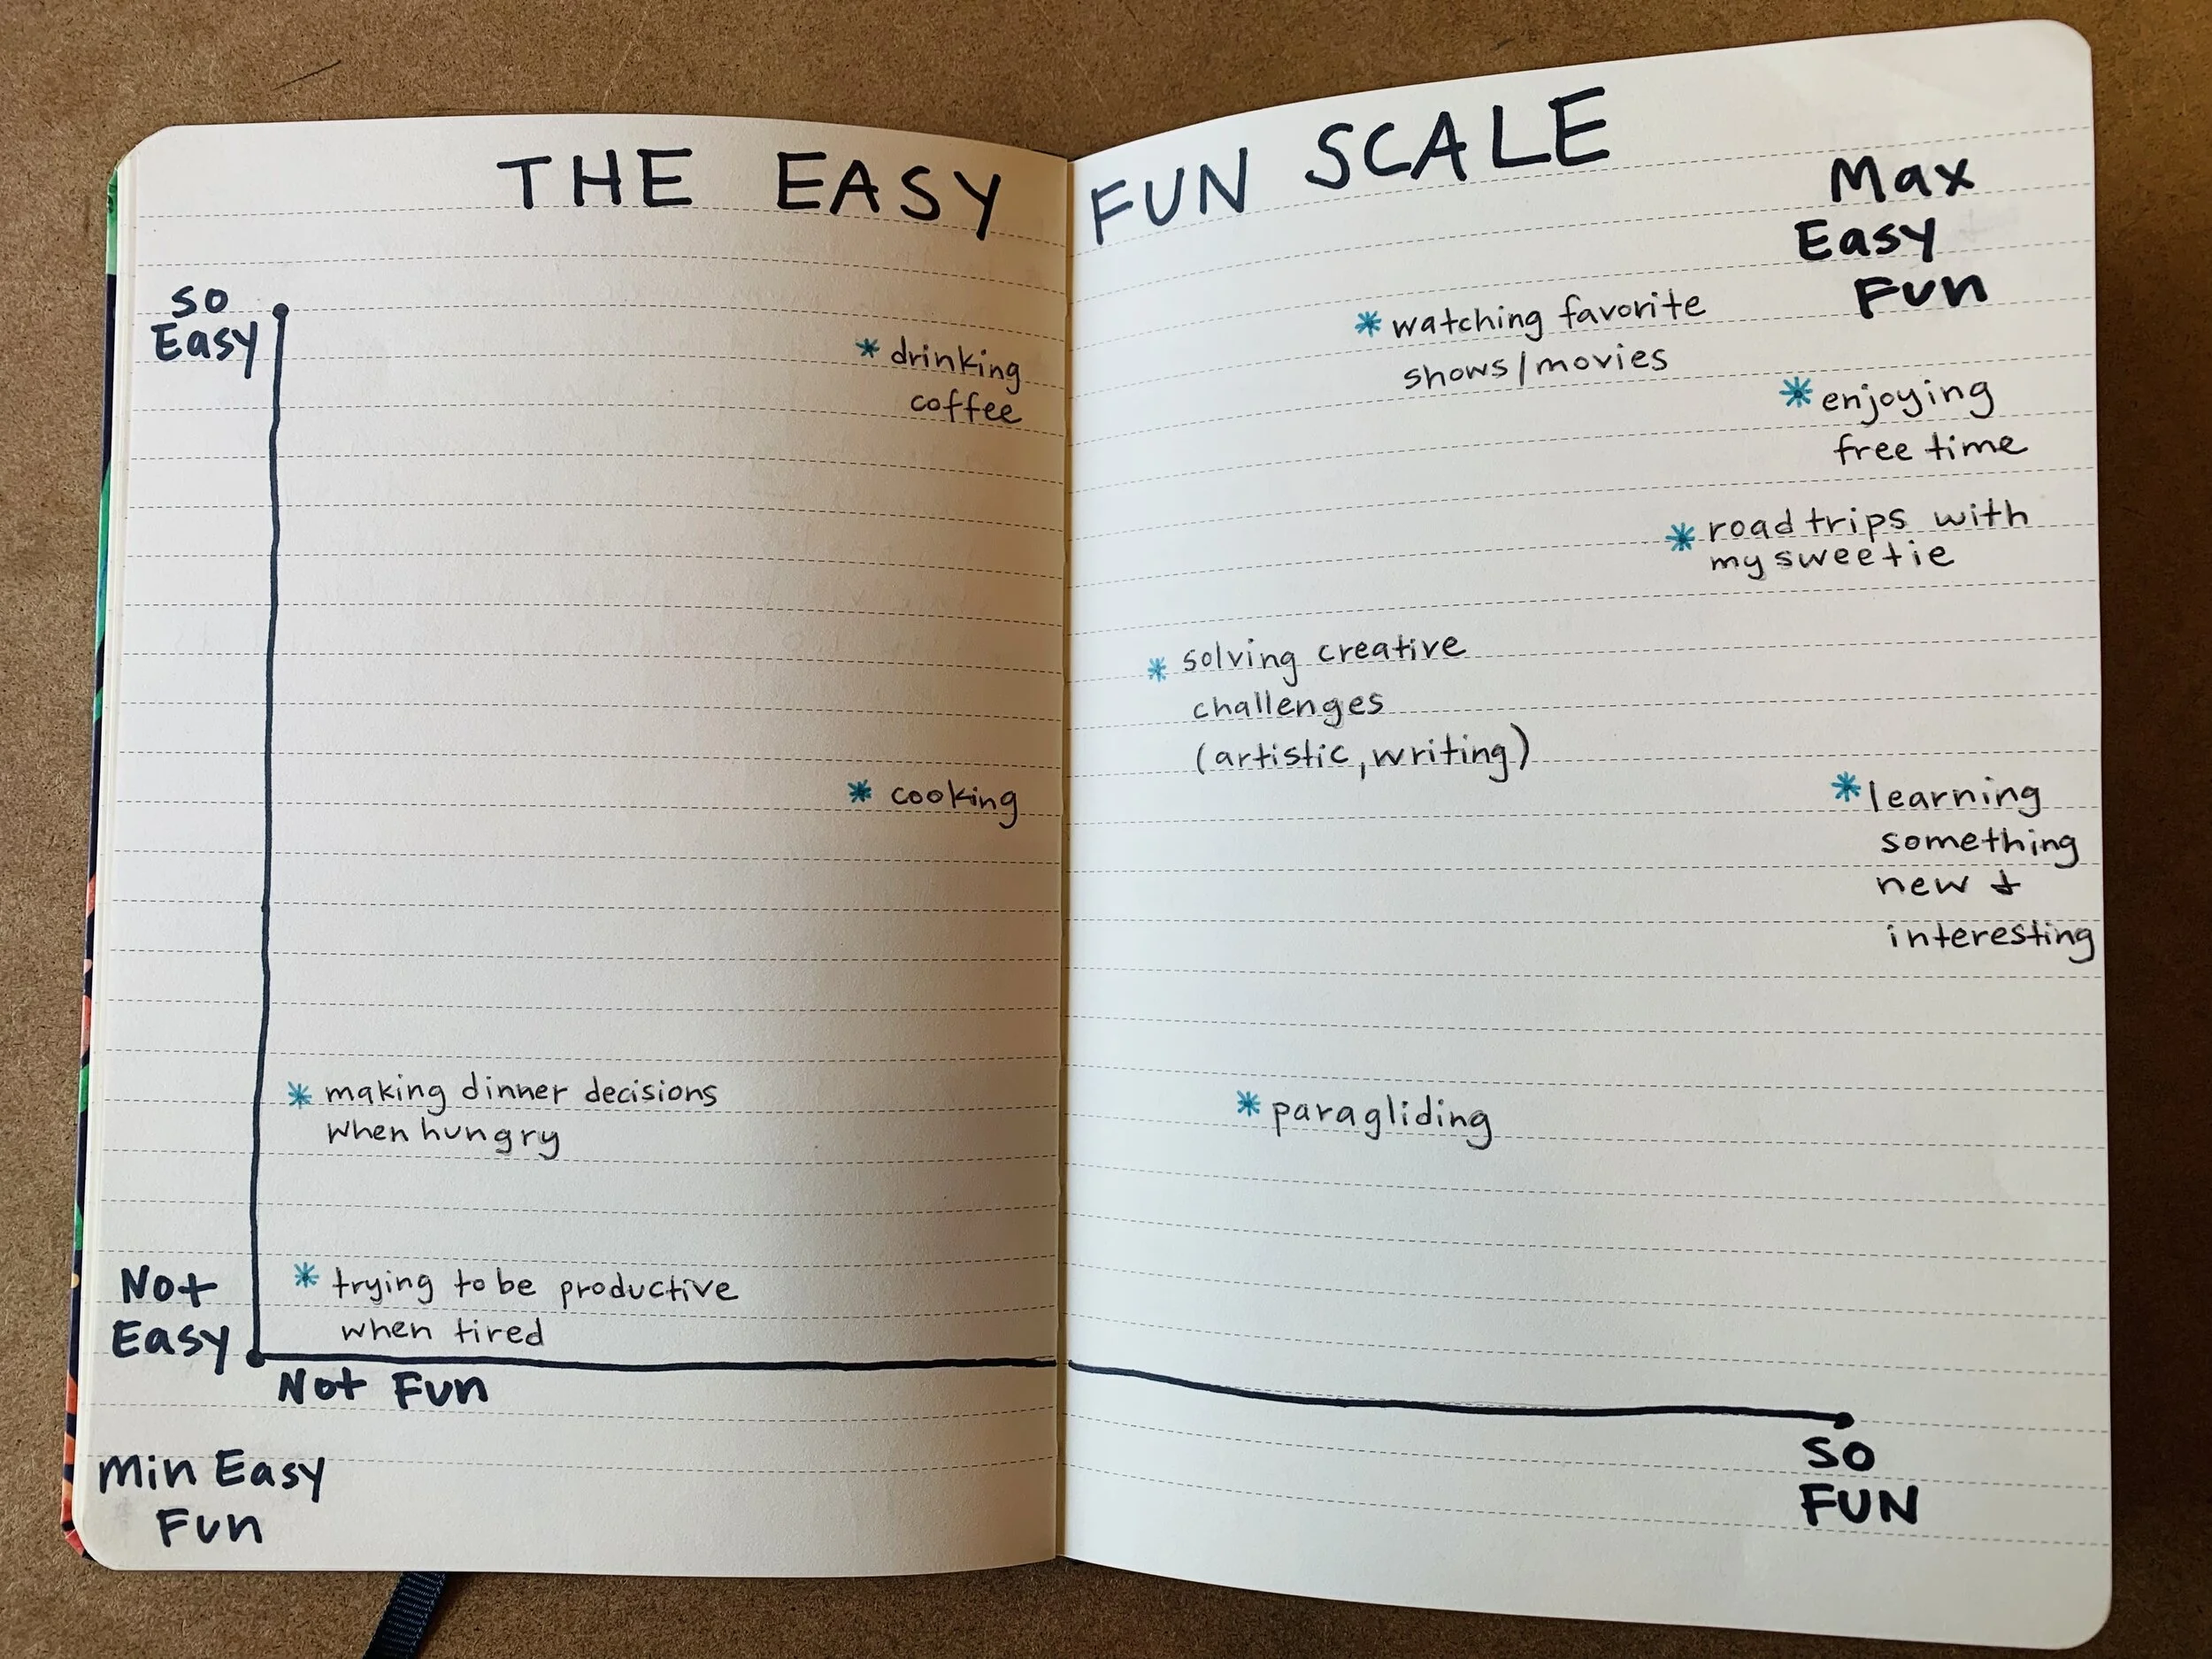 THE EASY FUN SCALE
Max
Easy
Fun
so
Easy
* drinking
coffee
* watching favorite
shows/movies
* enjoying
free time
* road trips with
my sweetie
* solving creative
challenges
(artistic, writing)
* cooking
* learning
something
new &
interesting
* making dinner decisions
when hungry
* paragliding
* trying to be productive
when tired
Not
Easy
Not Fun
so
FUN
Min Easy
Fun